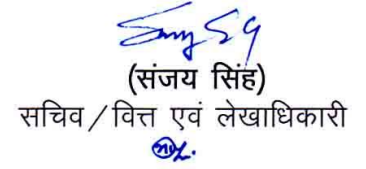 (संजय सिंह)
सचिव / वित्त एवं लेखाधिकारी